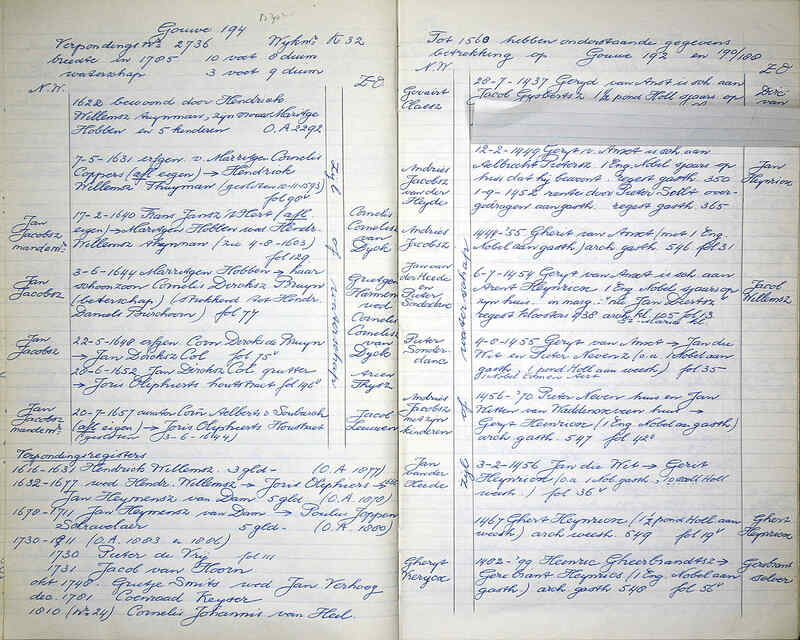 Gouwe 194
Verpondings No 2736 Wijkno K 32
breedte in 1785 10 voet 8 duim
waterschap 3 voet 9 duim
N.W. Z-O
1622 bewoond door Hendrick
Willemsz zijn vrouw Maritge
Hobben en 5 kinderen O.A. 2292
7-5-1631 erfgen v. Marritgen Cornelis
Coppers (afl eigen) → Hendrick
Willemsz Thuyman
fol 90v
Jan Jacobsz mandemr
17-2-1640 Frans Jansz 't Hart (afl
eigen) → Maritgen Hobben wed Hendr.
Willemsz (zie 4-8-1603)
fol 129
Cornelis Cornelis van Dyck
Jan Jacobsz
3-6-1644 Marritgen Hobben → haar
schoonzoon Cornelis Dircksz Bruyn
(beterschap) (strekkend tot Hendr.
Daniels) fol 77
Grietgen Harmens wed Cornelis Cornelisz van Dyck
Jan Jacobsz
22-5-1648 erfgen Corn Dircksz de Bruyn
→ Jan Dircksz Col fol 75v
20-6-1652 Jan Dircksz Col grutter
→ Joris Olepherts houtstraet fol 146v
Arien Thysz
Jan Jacobsz mandemr
20-7-1657
(afl eigen) → Joris Olepherts Houtstraet
(gesloten 3-6-1644)
Jacob Leeuwen
zyl of waterschap
Verpondingsregisters
1616-1631 Hendrick Willemsz 3 gld- (O.A. 1077)
1632-1677 wed Hendr. Willemsz → Joris Olepherts →
Jan Heymensz van Dam 5 gld (O.A. 1078)
1678-1711 Jan Heymensz van Dam → Poulus Joppen
5 gld- (O.A. 1080)
1730-1811 (O.A. 1083 e
1730 Pieter de Vrij fol 111
1731 Jacob van Hoorn
okt 1748 Grietje Smits wed Jan Verhoog
dec. 1781 Coenraad Keyser
1810 (No 24) Cornelis Johannis van Heel.
Tot 1560 hebben onderstaande gegevens
betrekking op Gouwe 192 en 190/188
N.W. Z-O
Govaert Claesz
28-7-1437 Geryd van Aest is sch aan
Jacob Gysbertsz 1½ pond Holl sjaars op
Dirc van
Andries Jacobsz van der Heyde
12-2-1449 Geryt v. Aest is sch aan
Aelbrecht Pietersz. 1 Eng. Nobel sjaars op
huis dat hy bewoont. regest gasth. 350
1-9-1452 rente door Pieter over-
gedragen aan gasth. regest gasth. 365
Jan Heynricx
Andries Jacobsz
1444-'55 Ghert van Aest (met 1 Eng.
Nobel aan gasth) arch gasth 546 fol 31
Jan van der Heede en Pieter
6-7-1454 Geryt van Aest is sch aan
Arent Heynricx 1 Eng Nobel sjaars op
zijn huis. in marg.: "nu Jan Diertsz"
regest kloosters 938 arch kl 105 fol 13
St Maria kl.
Jacob Willemsz
Pieter Sonderdanc
4-8-1455 Geryt van Aest → Jan die
Wit en Pieter Nevenz (o.a. 1 Nobel aan
gasth, 1 pond Holl aan weesh.) fol 35
Andries Jacobsz met zyn kinderen
1456-'70 Pieter Neven huis en Jan
Witten van huis →
Geryt Heinricx (1 Eng Nobel aan gasth)
arch. gasth. 547 fol 42v
zyl of waterschap
Jan vander Heede
3-2-1456 Jan die Wit → Gerit
Heynricx (o.a. 1 Nob gasth; 10 sc Holl
weesh.) fol 36v
1467 Ghert Heynricx (1½ pond Holl aan
weesh) arch weesh. 549 fol 19v
Ghert Heynricx
Gheryt
1482-'99 Heinric Gheerbrandtsz →
Gerebrant Heynricx (1 Eng. Nobel aan
gasth.) arch. gasth. 548 fol 56v
Gerebrant